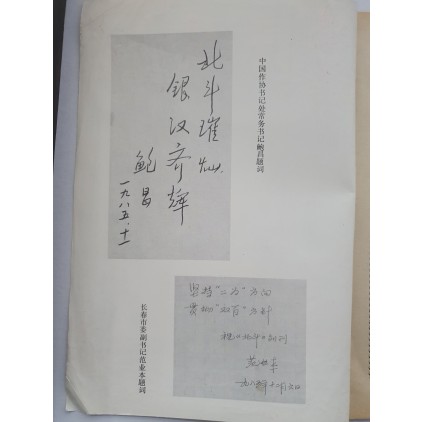 中国作协书记处常务书记鲍昌题词
北斗璀灿
银汉齐辉
鲍昌
一九八五·十一
长春市委副书记范业本题词
坚持"二为"方向
贯彻"双百"方针
祝《北斗》创刊
范业本
一九八五年十一月六日